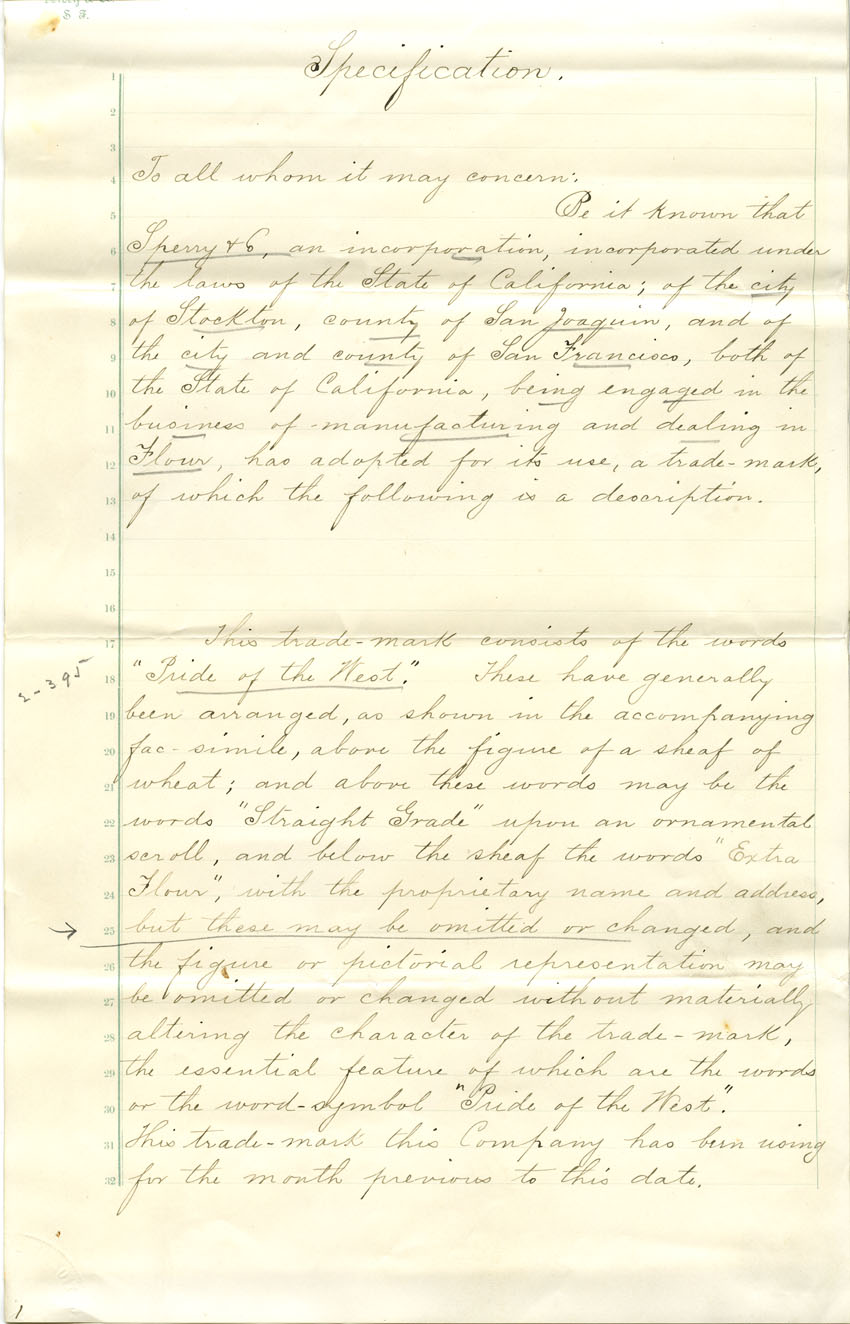 S. F.
Specification.
1
2
3
4 To all whom it may concern:
5 Be it known that
6 Sperry & Co, an incorporation, incorporated under
7 the laws of the State of California; of the city
8 of Stockton, county of San Joaquin, and of
9 the city and county of San Francisco, both of
10 the State of California, being engaged in the
11 business of manufacturing and dealing in
12 Flour, has adopted for its use, a trade-mark,
13 of which the following is a description.
14
15
16
17 This trade-mark consists of the words
2-395
18 "Pride of the West." These have generally
19 been arranged, as shown in the accompanying
20 fac-simile, above the figure of a sheaf of
21 wheat; and above these words may be the
22 words "Straight Grade" upon an ornamental
23 scroll, and below the sheaf the words "Extra
24 Flour", with the proprietary name and address,
→ 25 but these may be omitted or changed, and
26 the figure or pictorial representation may
27 be omitted or changed without materially
28 altering the character of the trade-mark,
29 the essential feature of which are the words
30 or the word-symbol "Pride of the West".
31 This trade-mark this Company has been using
32 for the month previous to this date.
1